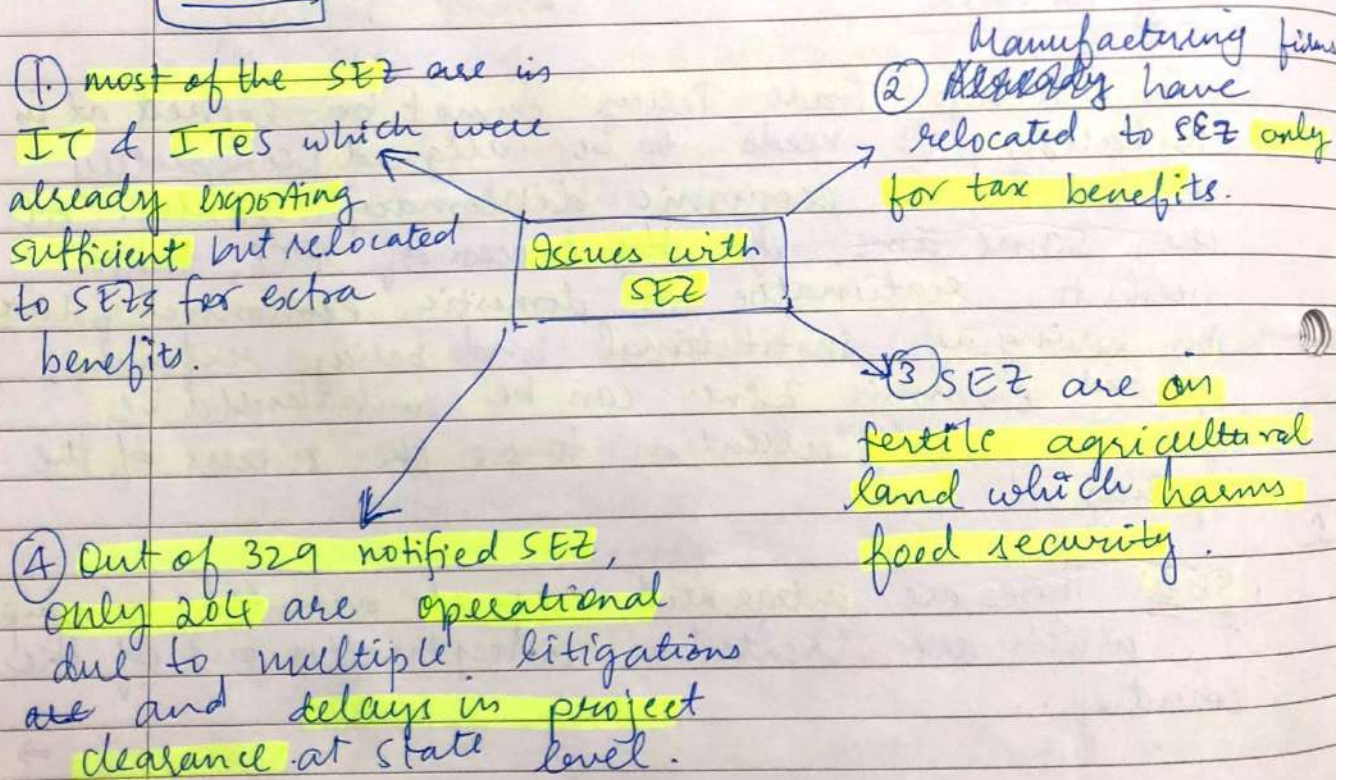 ① most of the SEZ are in
IT & ITes which were
already exporting
sufficient but relocated
to SEZs for extra
benefits.
Manufacturing
② have
relocated to SEZ only
for tax benefits.
Issues with
SEZ
③ SEZ are on
fertile agricultural
land which harms
food security.
④ Out of 329 notified SEZ,
only 204 are operational
due to multiple litigations
and delays in project
clearance at state level.